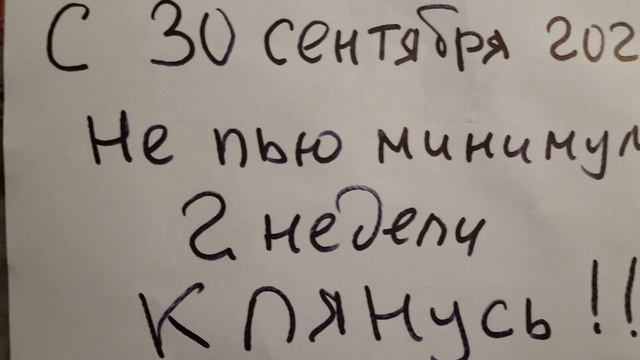 С 30 сентября 202
Не пью минимум
2 недели
Клянусь!!